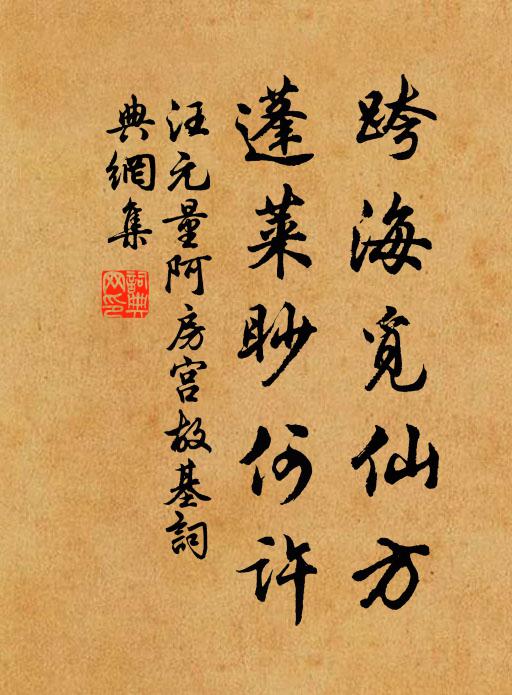 跨海覓仙方
蓬萊眇何許
汪元量阿房宮故基詞
典網集
詞典網印